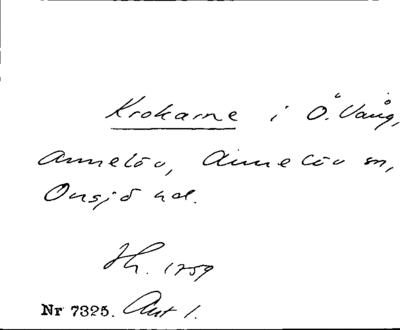 Krokarne i Ö. Vång,
Annelöv, Annelöv sn,
Onsjö hd.
Hh. 1759
Nr 7325. Akt 1.